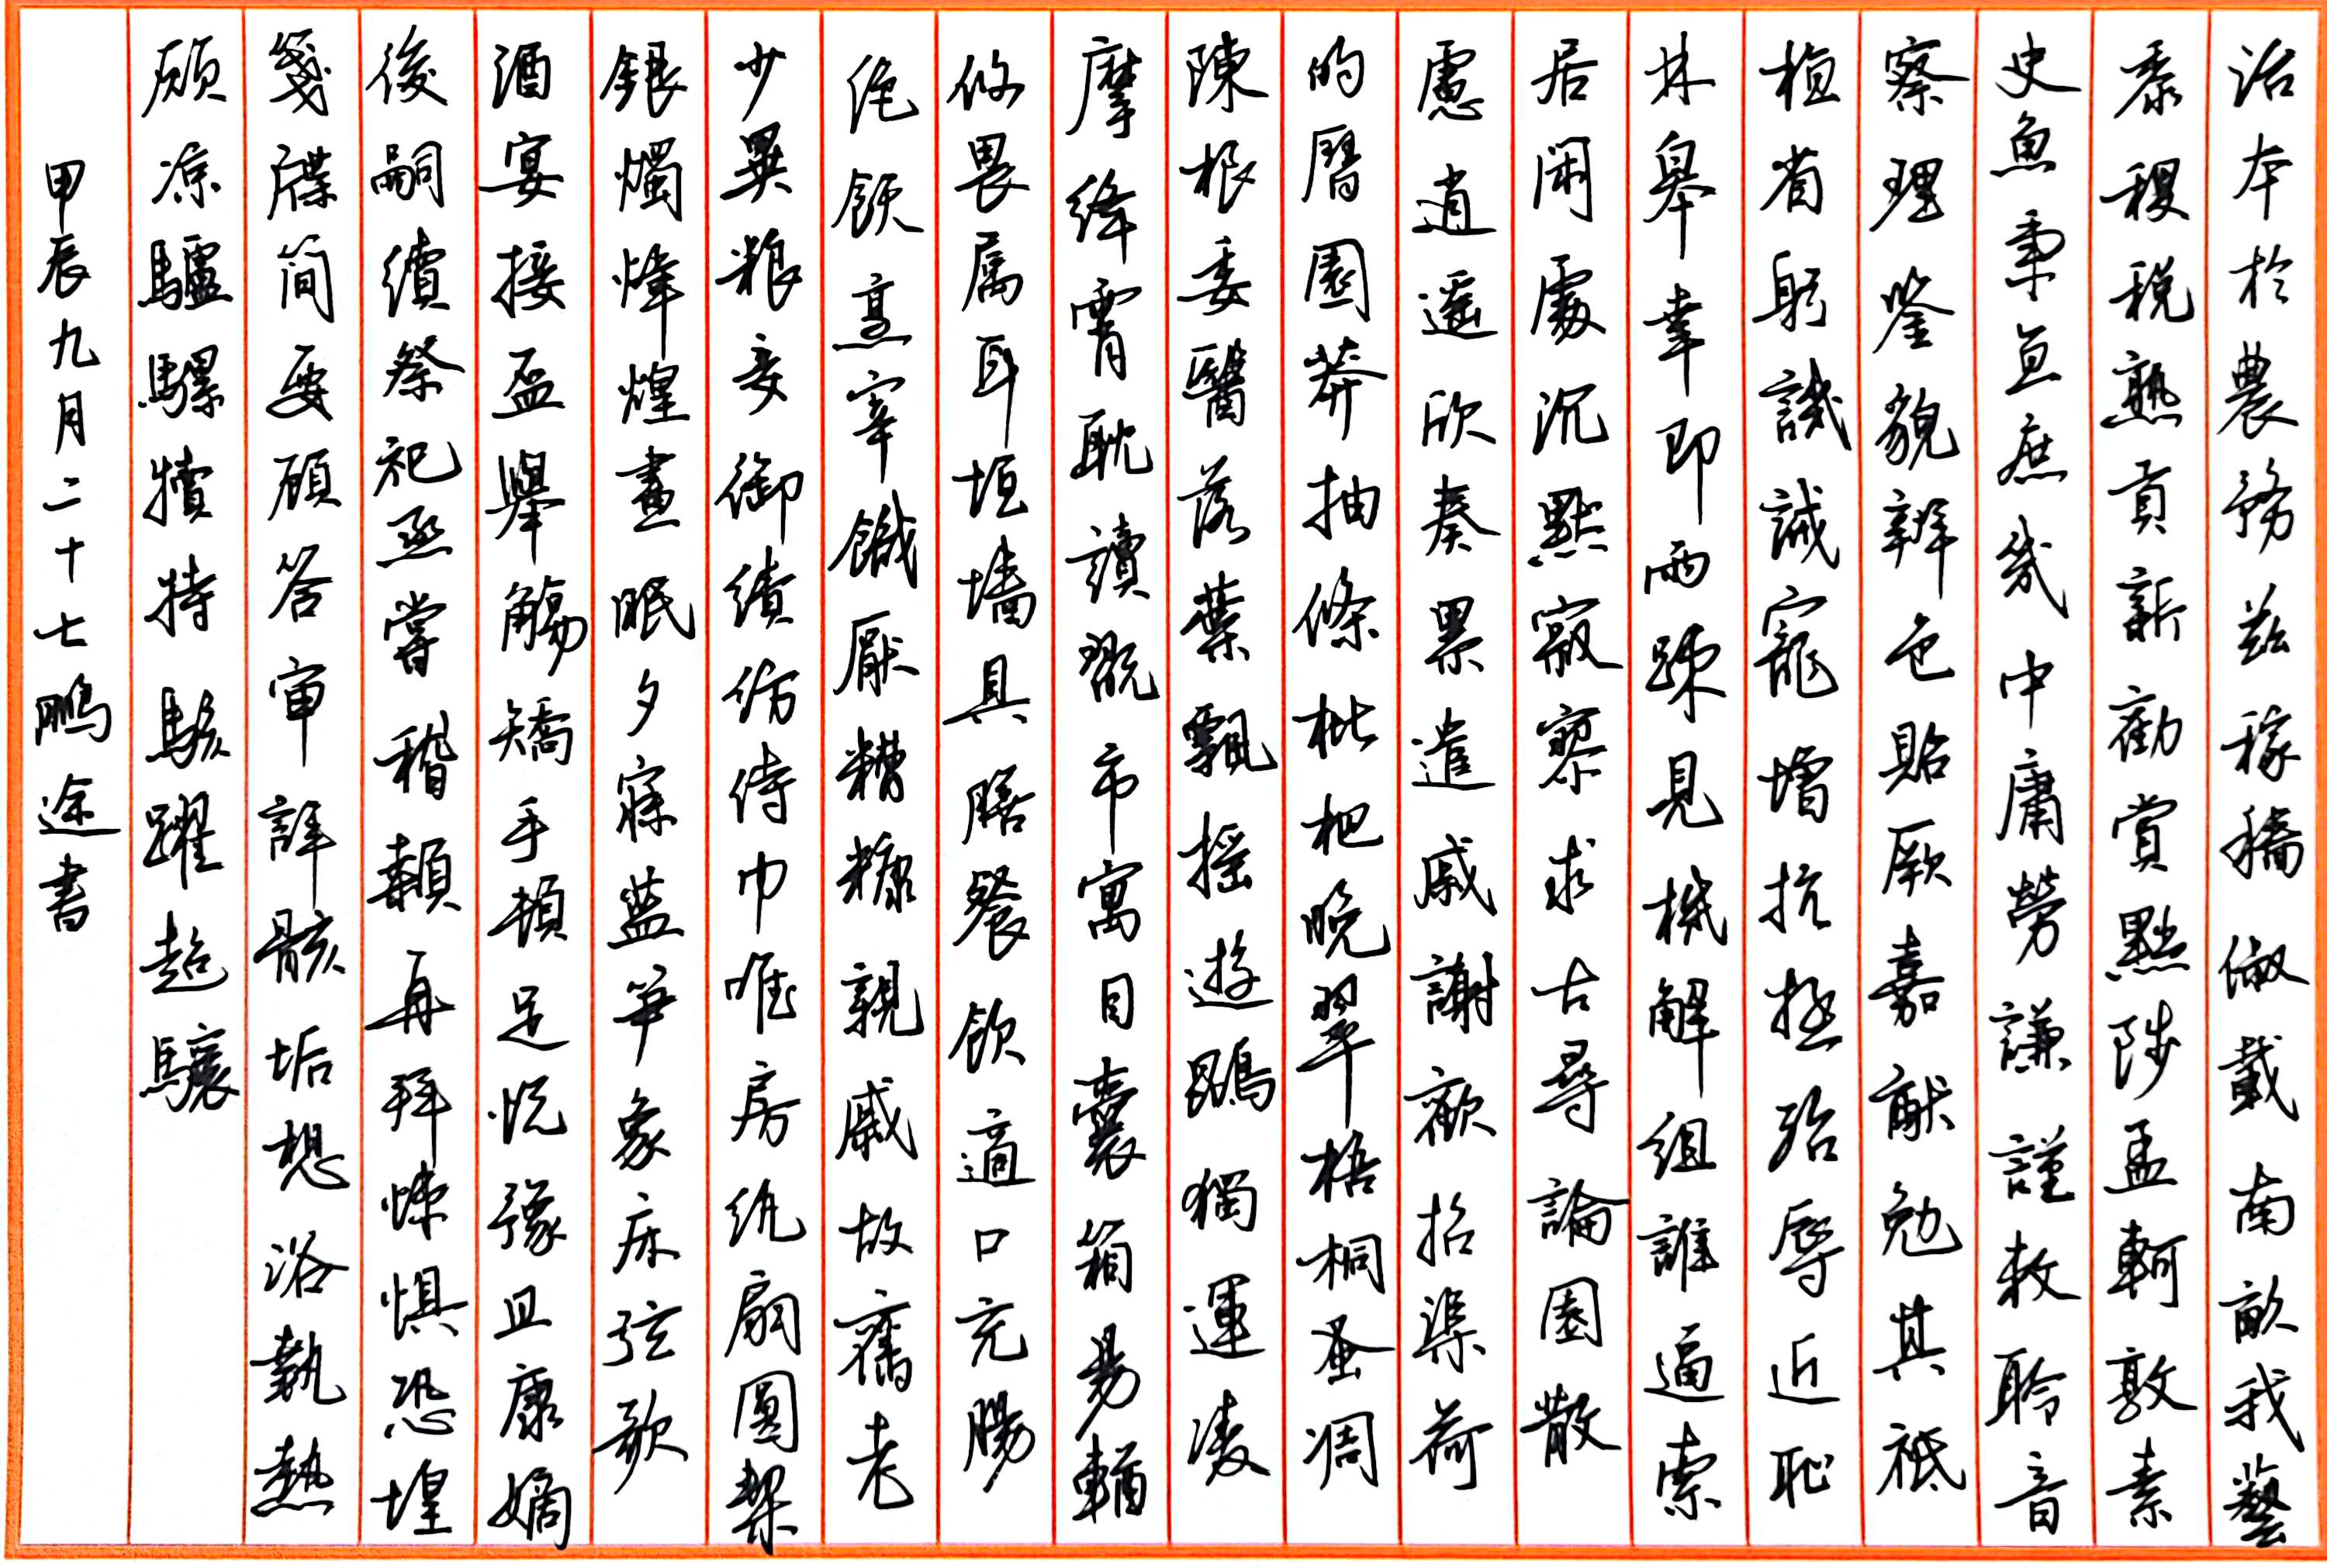 治本於農務茲稼穡俶載南畝我藝
黍稷稅熟貢新勸賞黜陟孟軻敦素
史魚秉直庶幾中庸勞謙謹敕聆音
察理鑒貌辨色貽厥嘉猷勉其祗
植省躬譏誡寵增抗極殆辱近恥
林皋幸即兩疎見機解組誰逼索
居閑處沉默寂寥求古尋論園散
慮逍遙欣奏累遣戚謝歡招渠荷
的曆園莽抽條枇杷晚翠梧桐蚤凋
陳根委翳落葉飄搖遊鵾獨運凌
摩絳霄耽讀翫市寓目囊箱易輶
攸畏属耳垣墻具膳餐飲適口充腸
飽飫烹宰饑厭糟糠親戚故舊老
少異粮妾御績紡侍巾帷房紈扇圓絜
銀燭煒煌晝眠夕寐藍笋象床弦歌
酒宴接盃舉觴矯手頓足悅豫且康嫡
後嗣續祭祀烝嘗稽顙再拜悚懼恐惶
箋牒简要顧答审詳骸垢想浴執熱
願凉驢騾犢特駭躍超驤
甲辰九月二十七鵬途書